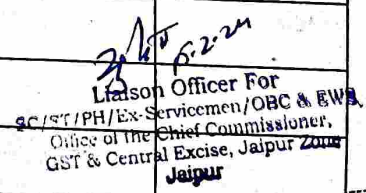 5.2.24
Liaison Officer For
SC/ST/PH/Ex-Servicemen/OBC & EWS,
Office of the Chief Commissioner,
GST & Central Excise, Jaipur Zone
Jaipur